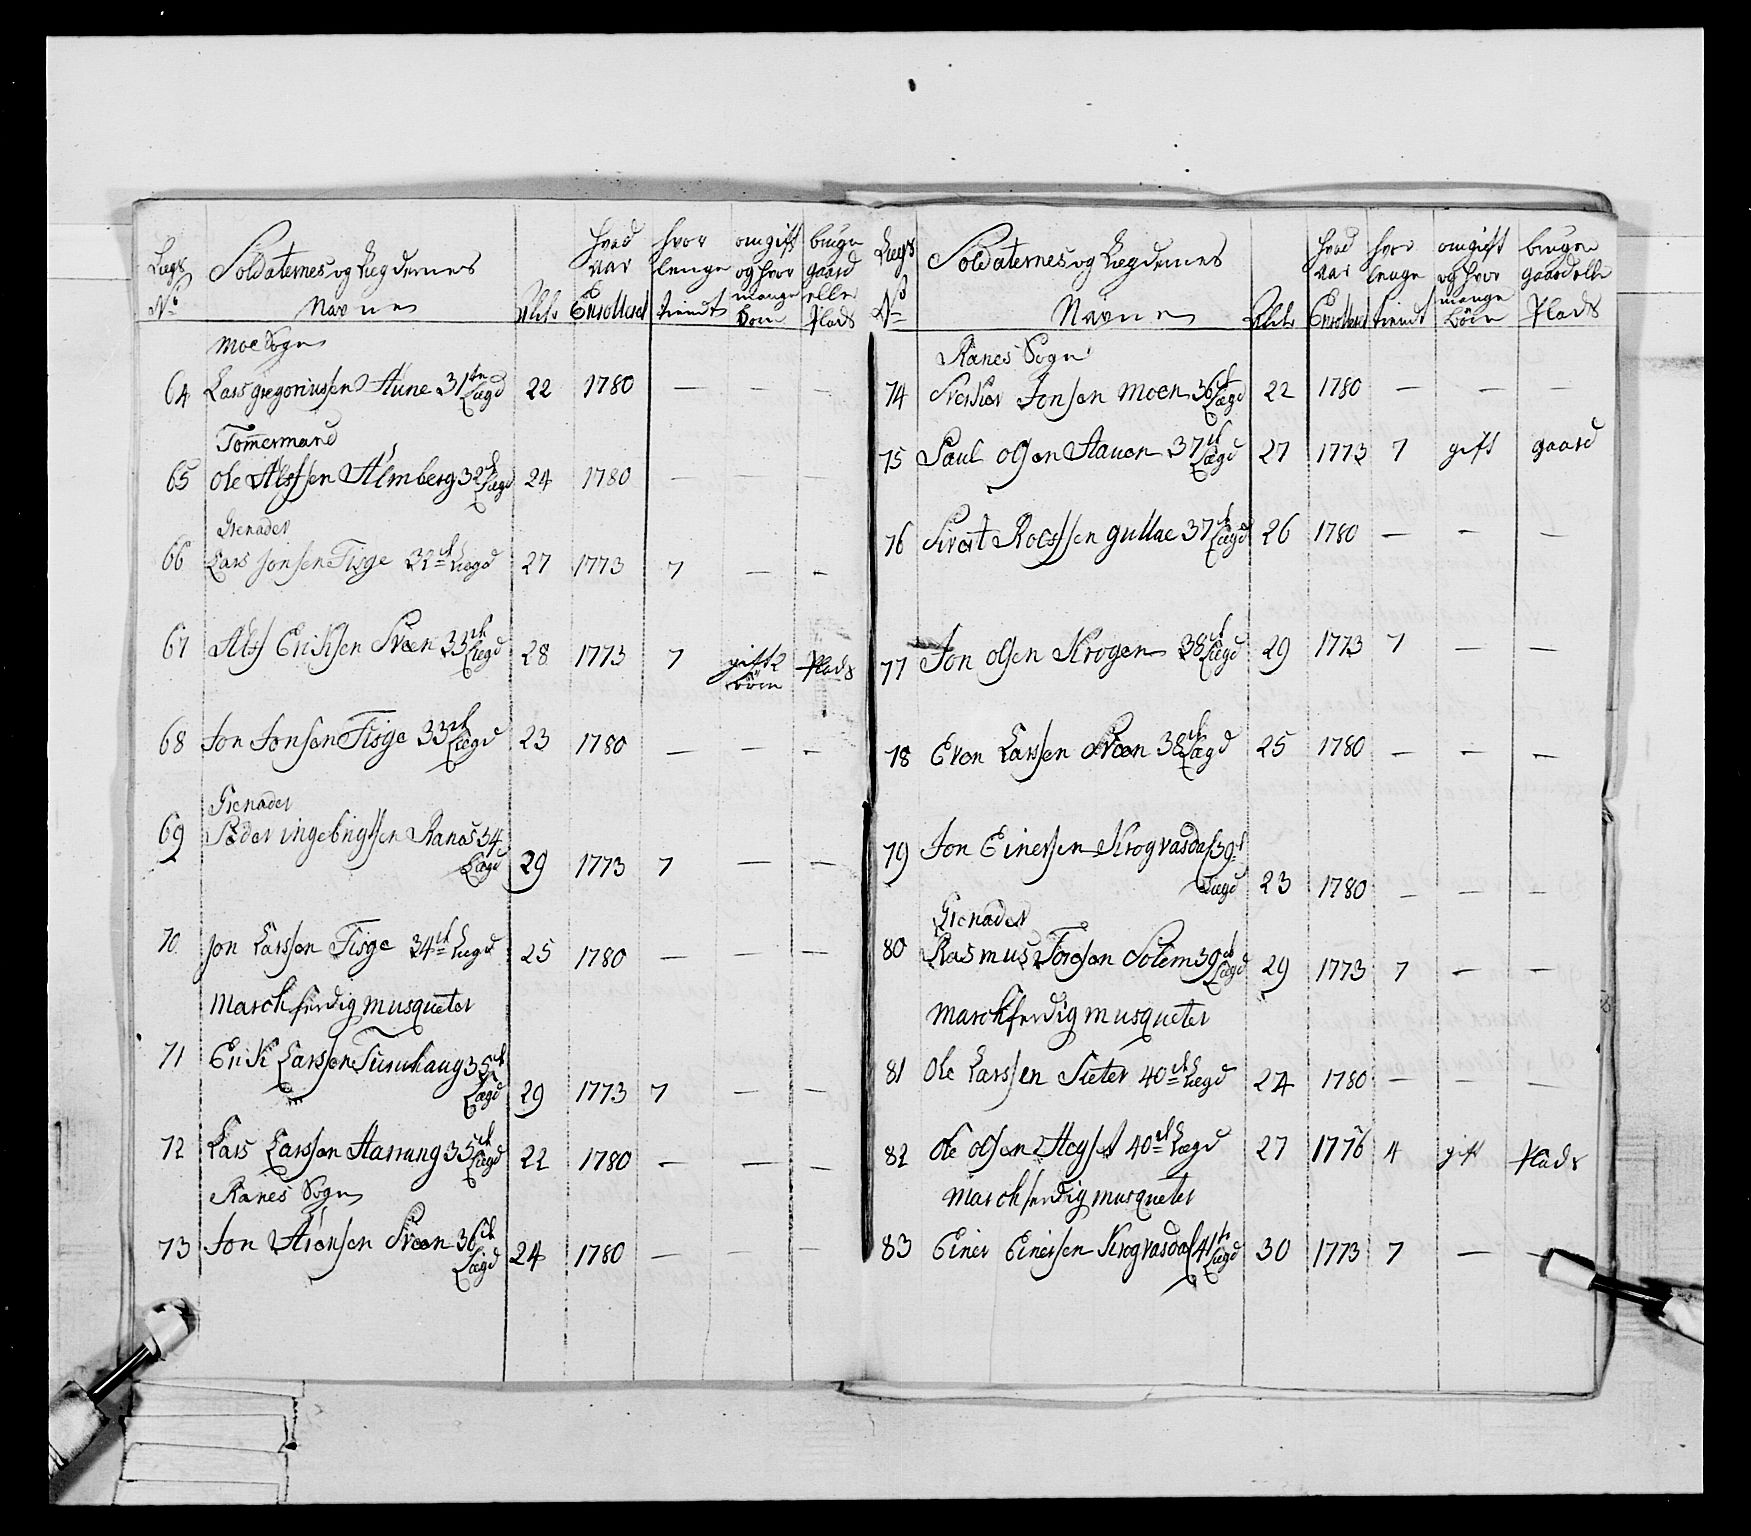 Lægs No Soldaternes og Lægdernes Navne Alder hvad aar Enrolleret hvor lenge tient om gift og hvor mange Børn bruger gaard eller Plads
Moe Sogn
64 Lars gregoriussen Aune 31te Lægd 22 1780 — — —
Tømmermand
65 Ole Alfssen Almberg 32te Lægd 24 1780 — — —
Grenader
66 Lars Jonsen Fisge 32te Lægd 27 1773 7 — —
67 Alf Eriksen Svean 33te Lægd 28 1773 7 gift 2 børn Plads
68 Jon Jonsen Fisge 33te Lægd 23 1780 — — —
Grenader
69 Peder ingebrigtsen Ranes 34 Lægd 29 1773 7 — —
70 Jon Larssen Fisge 34te Lægd 25 1780 — — —
Marchferdig musqueter
71 Erik Larssen 35te Lægd 29 1773 7 — —
72 Lars Larssen Harrang 35te Lægd 22 1780 — — —
Ranes Sogn
73 Jon Arensen Svean 36te Lægd 24 1780 — — —
Lægs No Soldaternes og Lægdernes Navne Alder hvad aar Enrolleret hvor lenge tient om gift og hvor mange børn bruger gaard elle Plads
Ranes Sogn
74 Jonsen Moen 36te Lægd 22 1780 — — —
75 Paul Olsen Aauen 37te Lægd 27 1773 7 gift gaard
76 Sivert gullae 37te Lægd 26 1780 — — —
77 Jon Olsen Krogen 38te Lægd 29 1773 7 — —
78 Even Larssen Svean 38te Lægd 25 1780 — — —
79 Jon Einersen Krogvasdal 39te Lægd 23 1780 — — —
Grenader
80 Rasmus Toresen Solem 39te Lægd 29 1773 7 — —
Marchferdig musqueter
81 Ole Larssen Sæter 40te Lægd 24 1780 — — —
82 Ole Olsen 40te Lægd 27 1776 4 gift Plads
Marchferdig musqueter
83 Einer Einersen Krogvasdal 41te Lægd 30 1773 7 — —